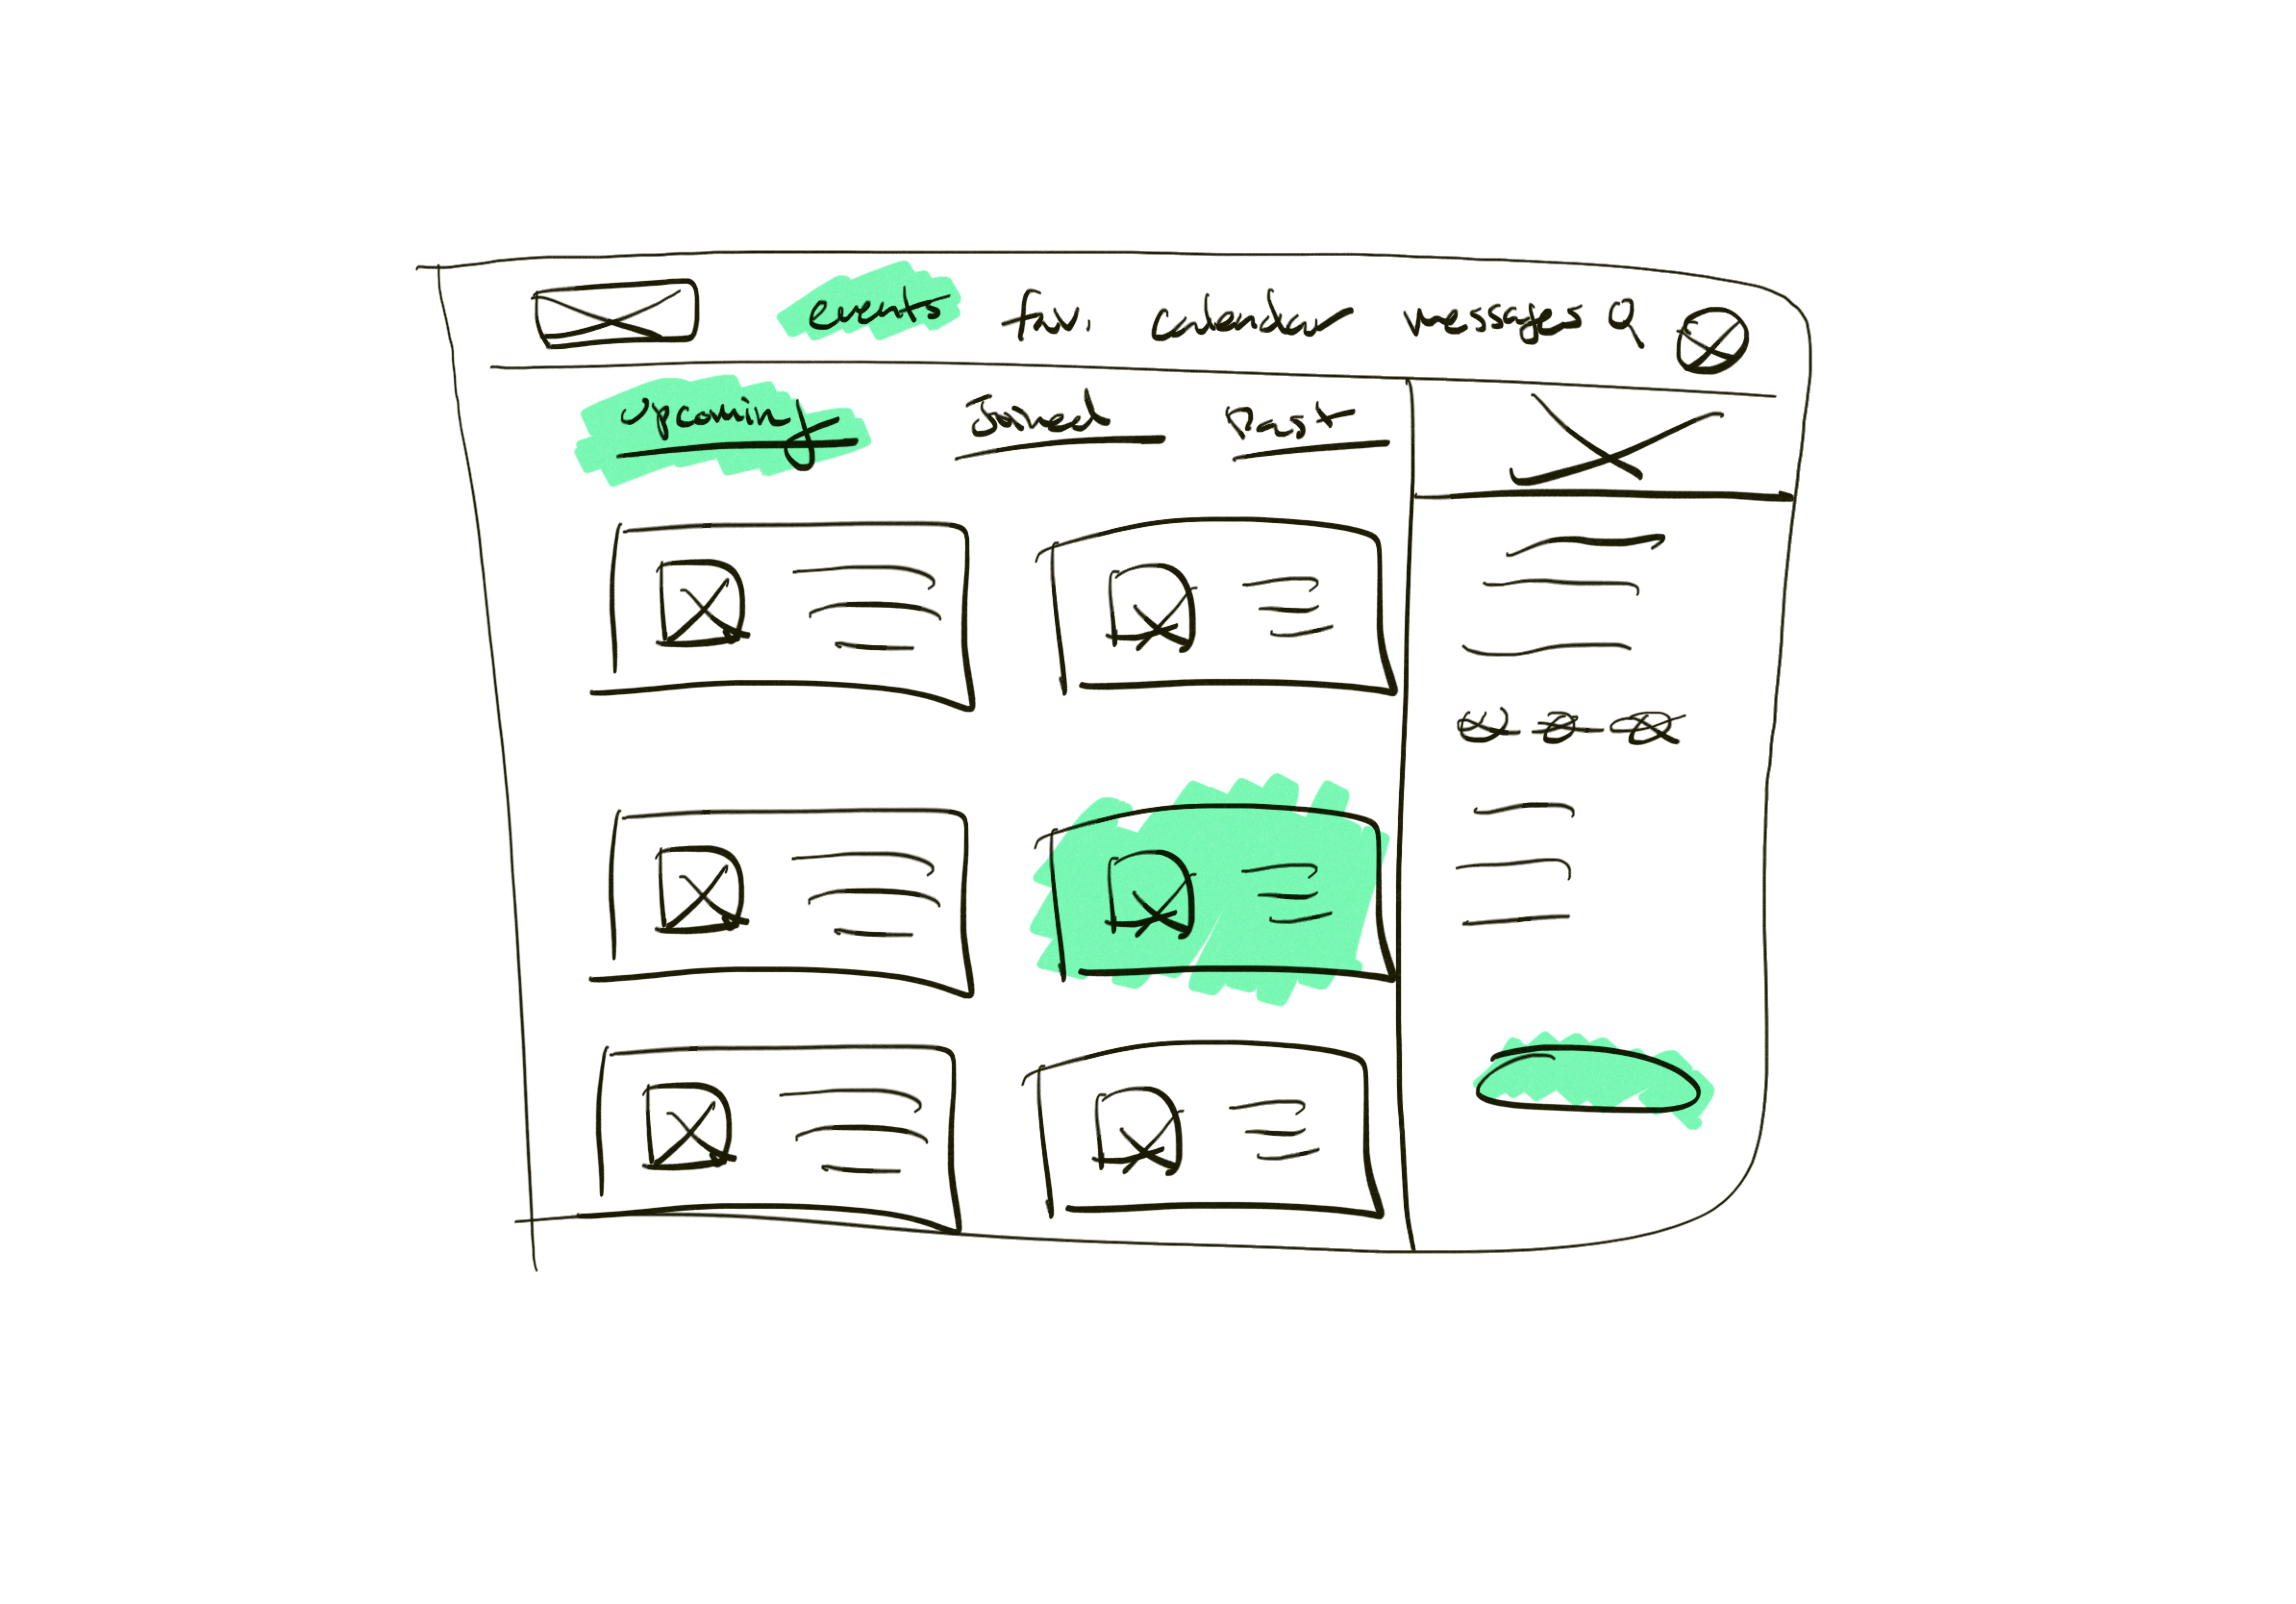 events fav. calendar messages
upcoming Joined Past